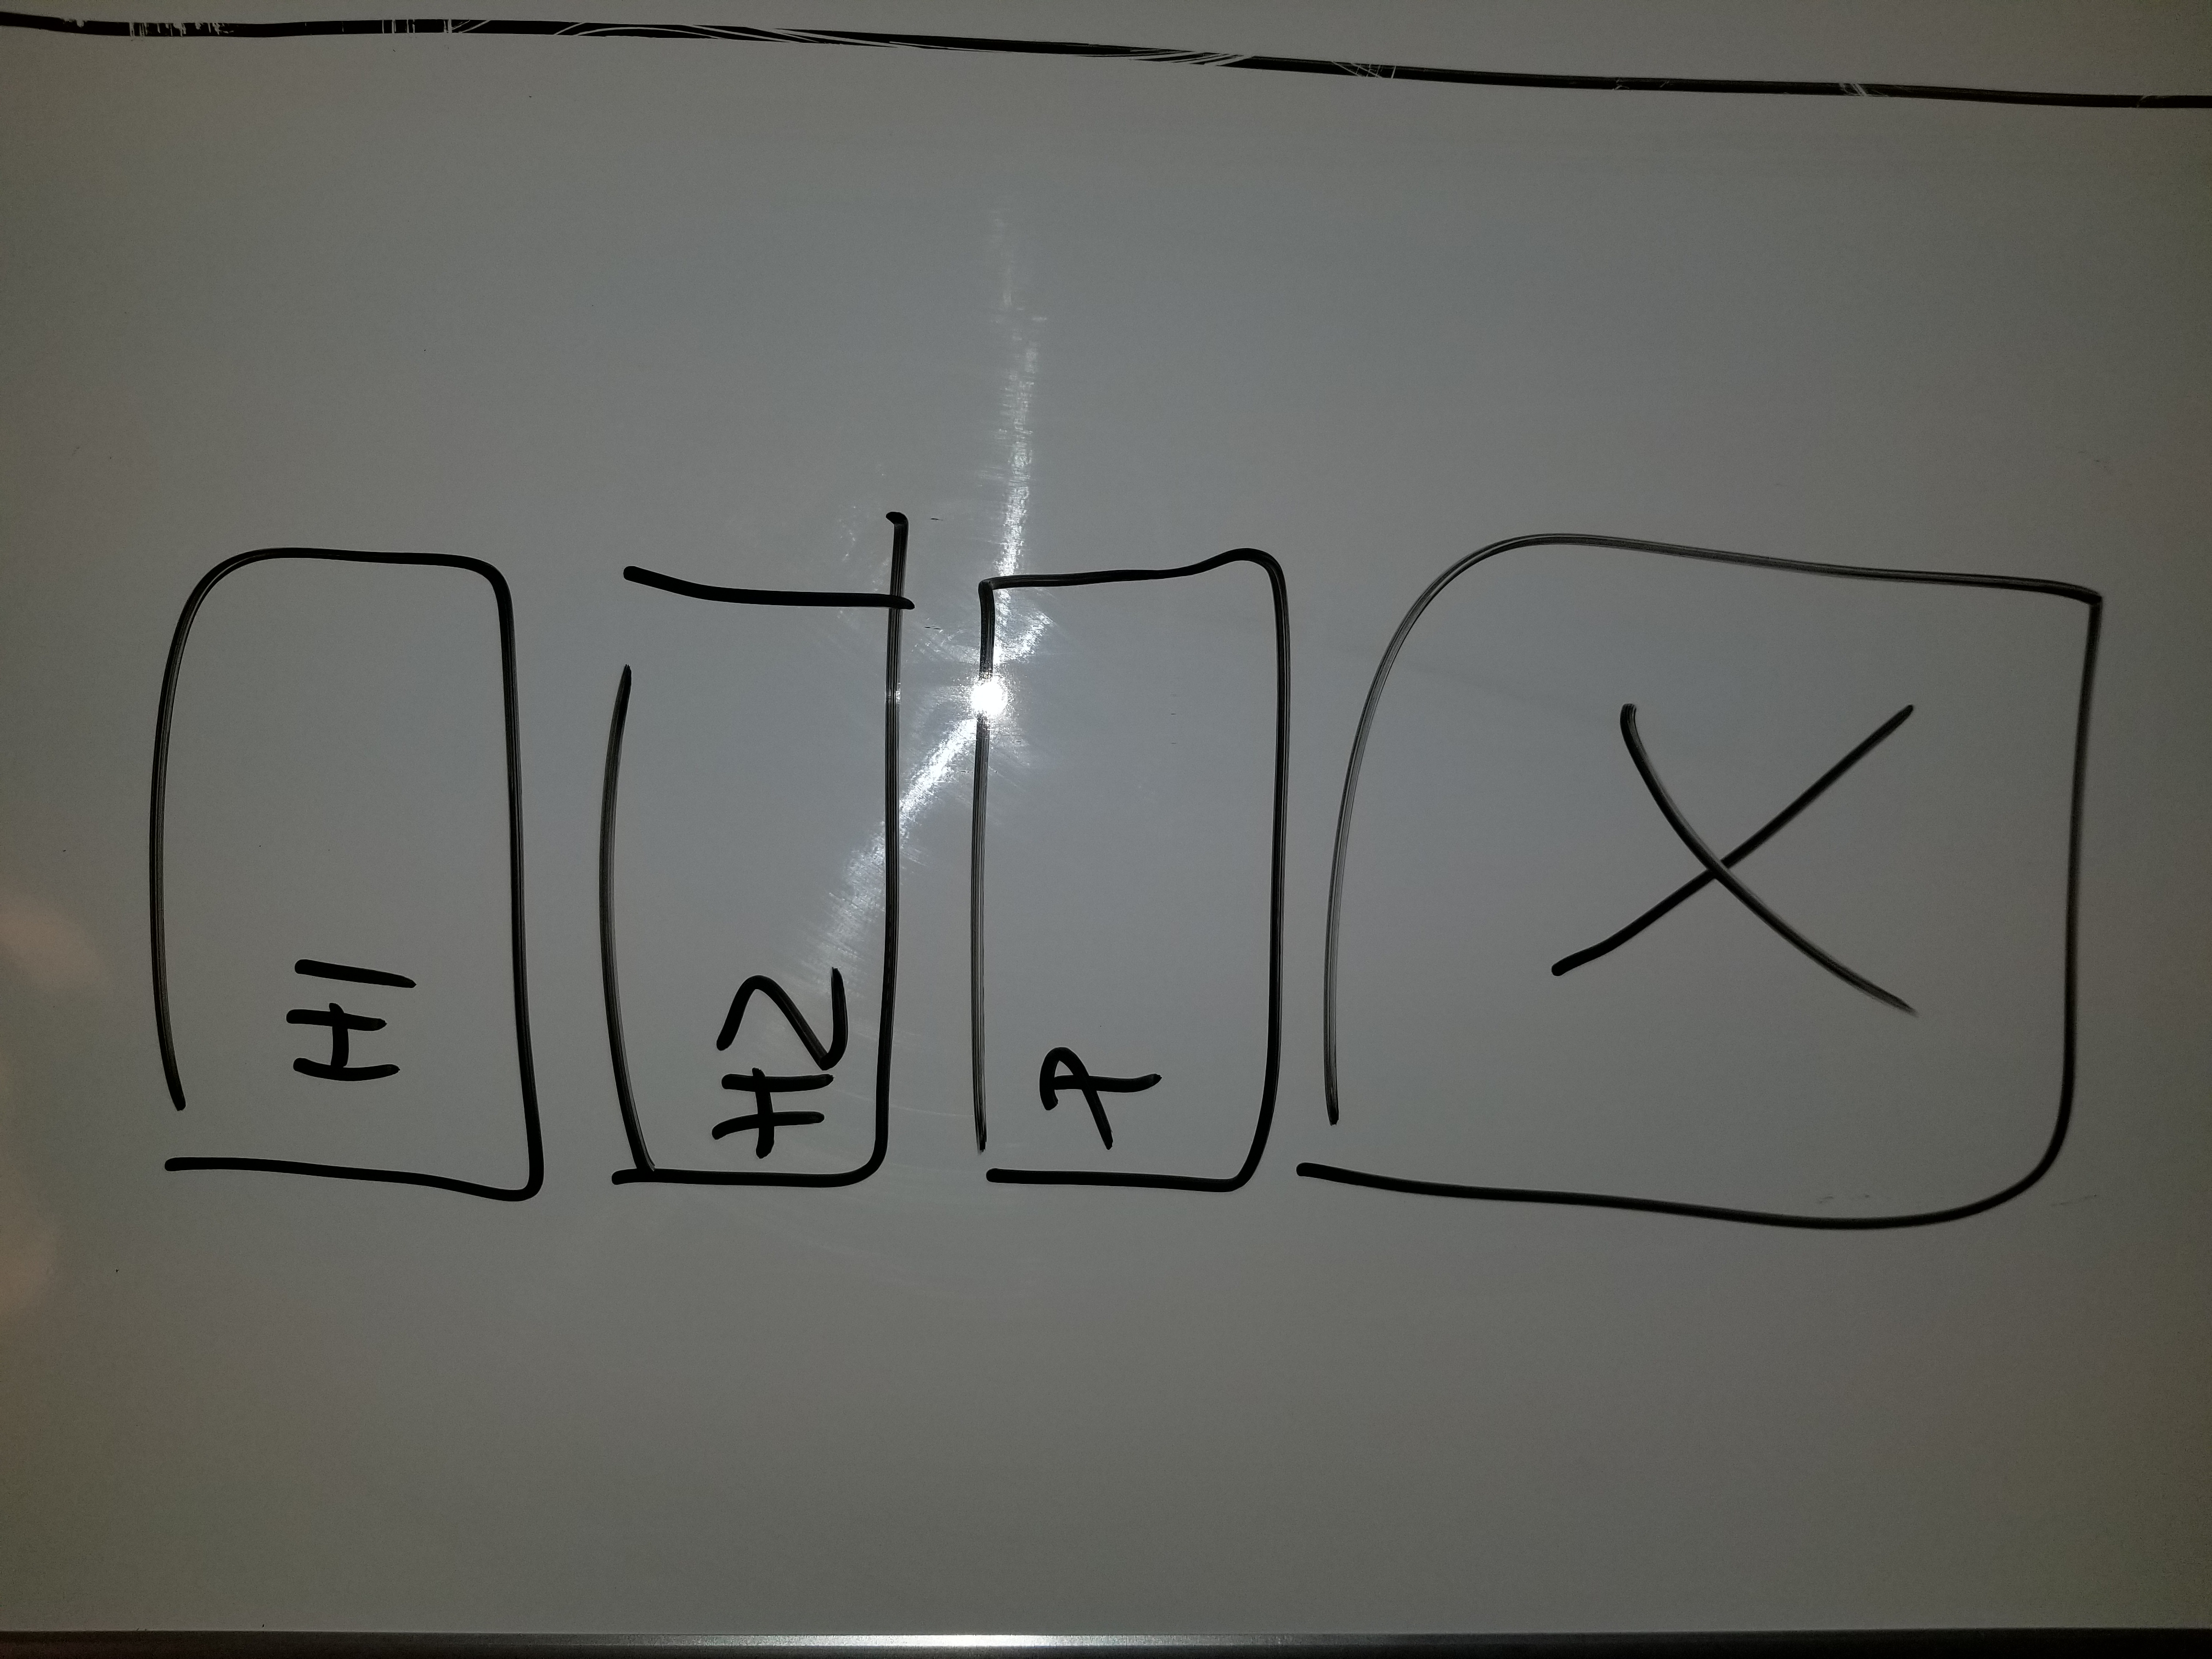 H1
H2
P
X